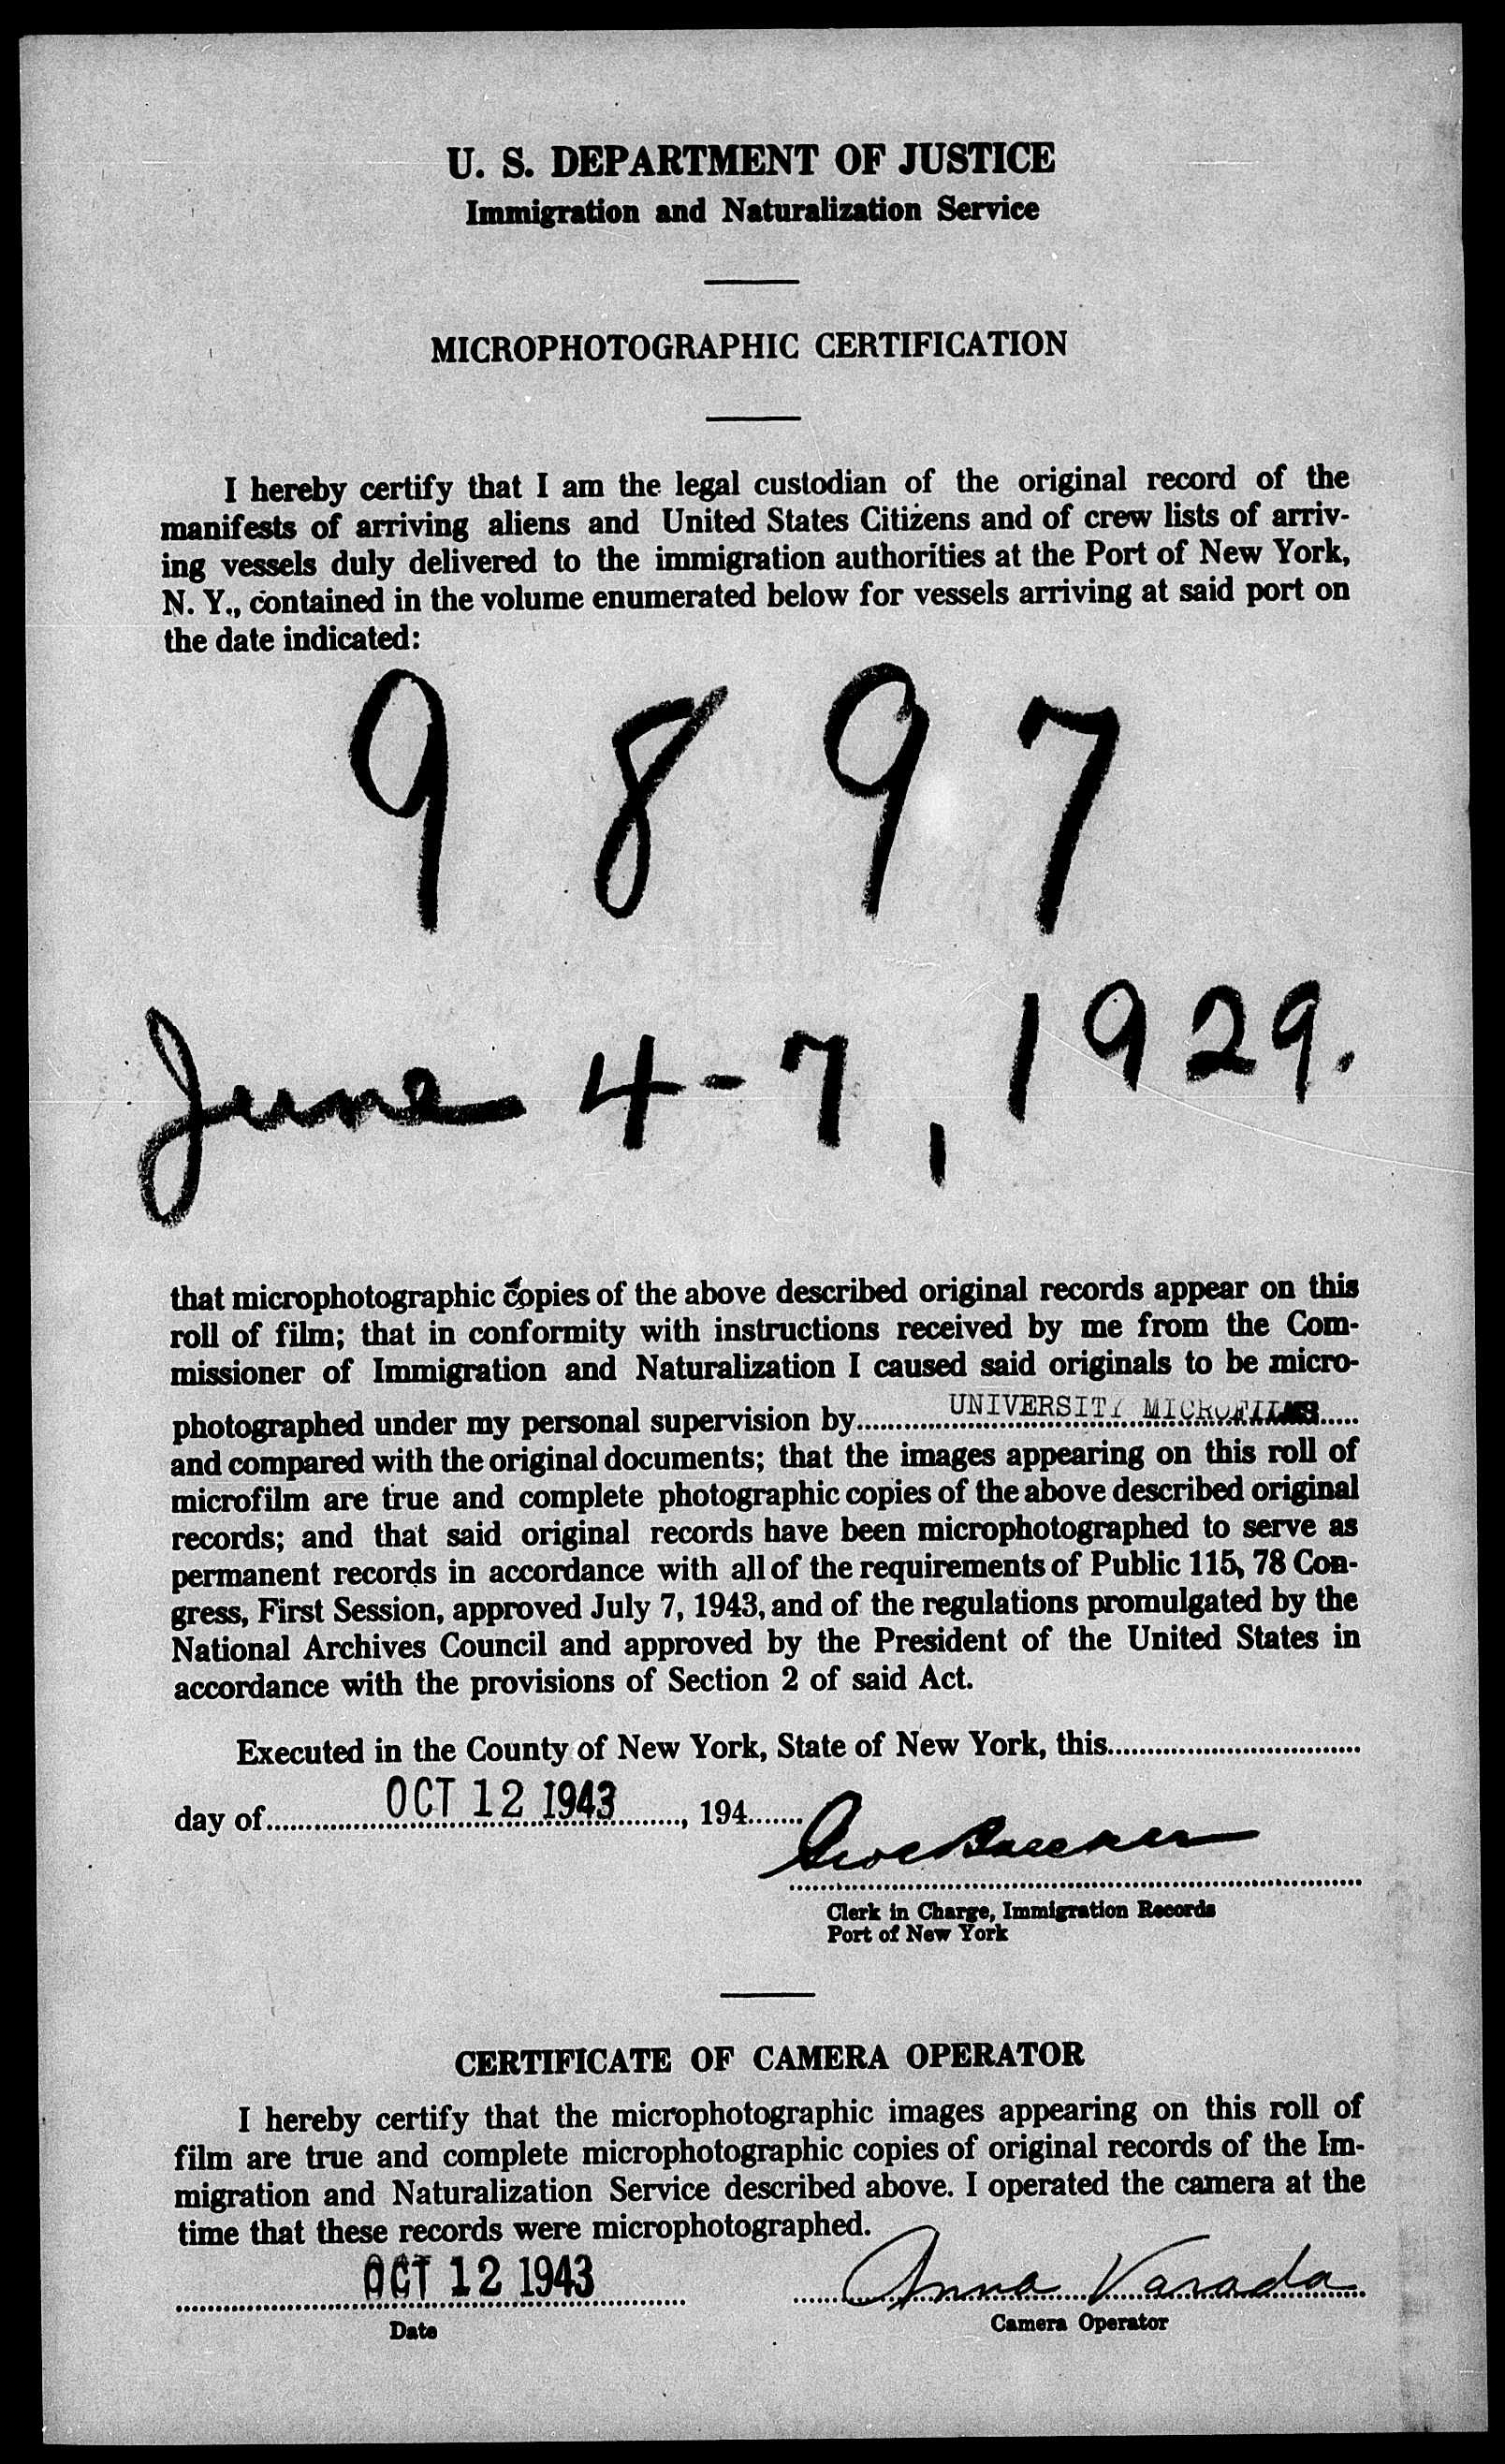 U. S. DEPARTMENT OF JUSTICE
Immigration and Naturalization Service
MICROPHOTOGRAPHIC CERTIFICATION
I hereby certify that I am the legal custodian of the original record of the
manifests of arriving aliens and United States Citizens and of crew lists of arriv-
ing vessels duly delivered to the immigration authorities at the Port of New York,
N. Y., contained in the volume enumerated below for vessels arriving at said port on
the date indicated:
9897
June 4-7, 1929.
that microphotographic copies of the above described original records appear on this
roll of film; that in conformity with instructions received by me from the Com-
missioner of Immigration and Naturalization I caused said originals to be micro-
photographed under my personal supervision by UNIVERSITY MICROFILMS
and compared with the original documents; that the images appearing on this roll of
microfilm are true and complete photographic copies of the above described original
records; and that said original records have been microphotographed to serve as
permanent records in accordance with all of the requirements of Public 115, 78 Con-
gress, First Session, approved July 7, 1943, and of the regulations promulgated by the
National Archives Council and approved by the President of the United States in
accordance with the provisions of Section 2 of said Act.
Executed in the County of New York, State of New York, this
day of OCT 12 1943, 194
Clerk in Charge, Immigration Records
Port of New York
CERTIFICATE OF CAMERA OPERATOR
I hereby certify that the microphotographic images appearing on this roll of
film are true and complete microphotographic copies of original records of the Im-
migration and Naturalization Service described above. I operated the camera at the
time that these records were microphotographed.
OCT 12 1943 Anna Varada
Date Camera Operator